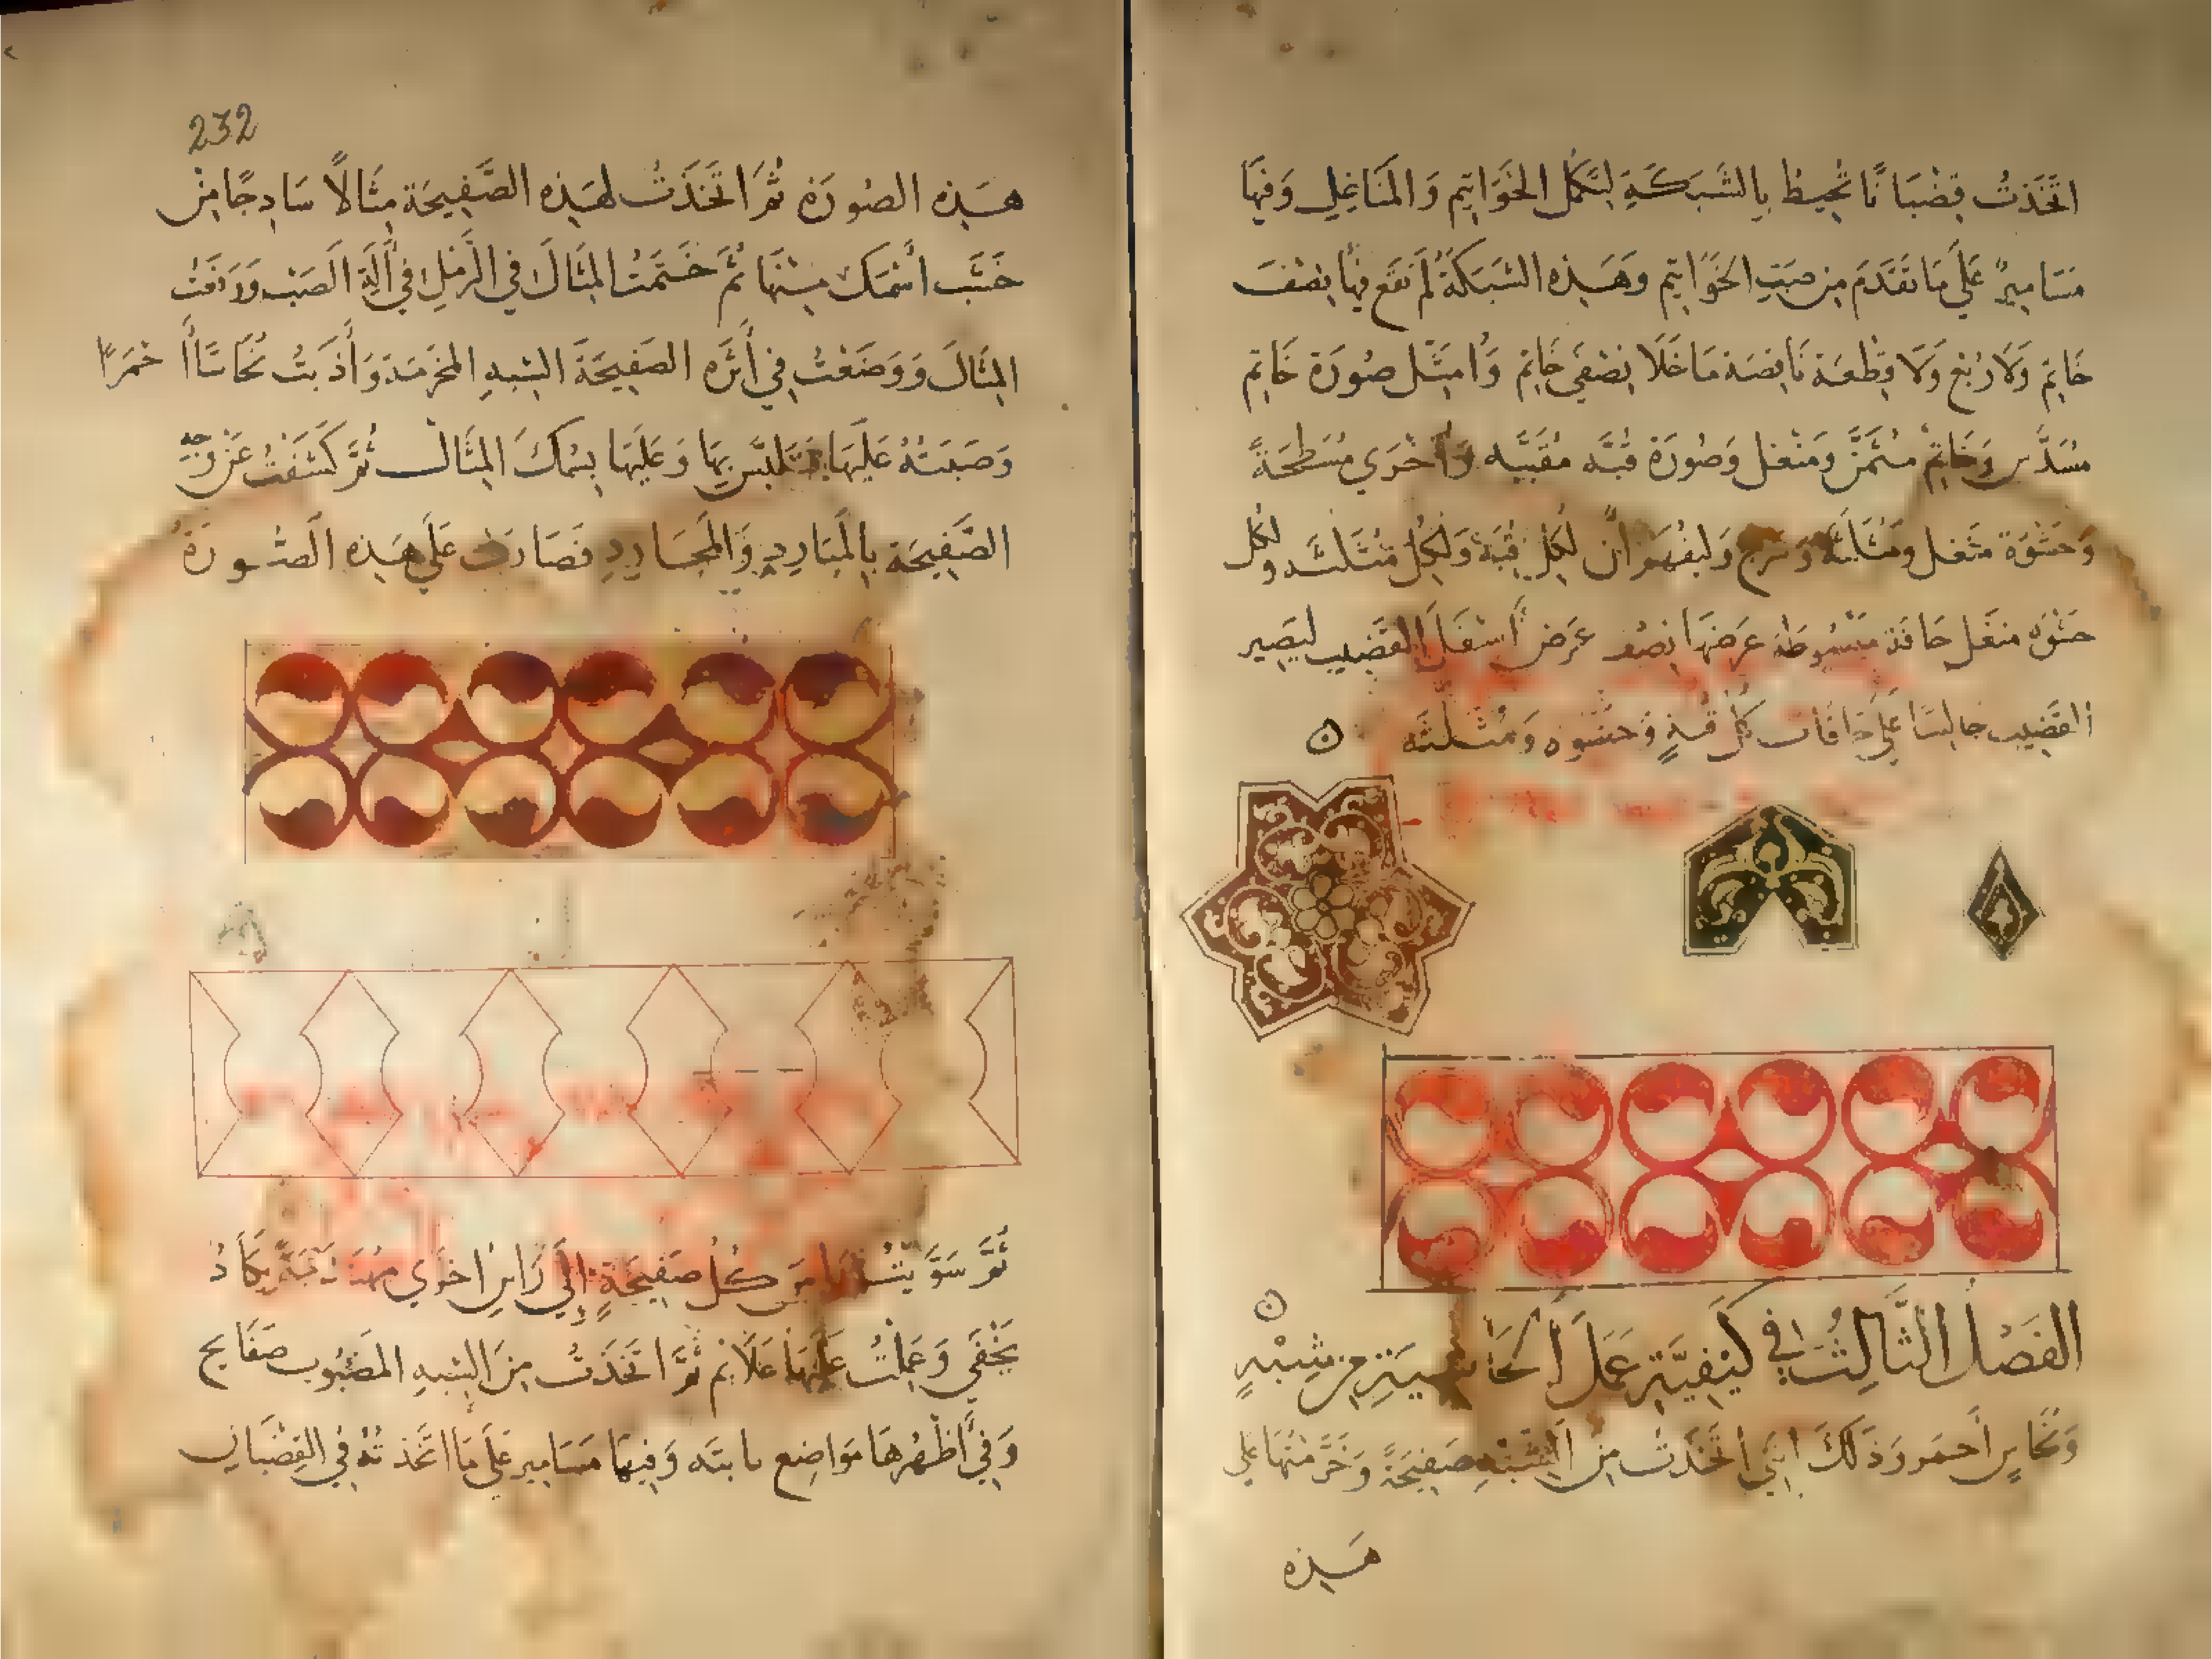 اتَّخَذتُ قضبَانًا تُحِيط بِالشَبَكَةِ لتَكمل الخَوَاتِيم وَالمَنَاغِيل وَفيهَا
مسَامِير عَلَى مَا تَقَدَمَ مِن صَبِّ الخَوَاتِيم وَهَذِه الشبَكَةُ لَم تَقَع فيهَا نِصْف
خَاتِم وَلَا رُبْع وَلَا قِطْعَة نَاقِصَة مَا خَلَا نِصْفَي خَاتِم وَأُمَثِّل صُورَة خَاتِم
مُسَدَّس وَخَاتِم مُثَمَّن وَمَنغل وَصُورَة قُبَّه مُقَبَّبه وَأخرَي مُسَطحَةً
وَحَشْوَة مَنغل وَمثَلثَة وليفهَم أَن لِكُلِ قُبَة وَلِكُلِ مُثَلثَه ولكل
حَشْوَه منغَل حَافَة مَبْسُوطَة عَرضهَا نصْف عَرض أَسْفَل القَضِيب ليَصِير
القَضِيب جالسًا عَلَي حَافَات كُل قُبةٍ وَحَشْوه وَمُثَلثَه ن
ن
الفَصْلُ الثَّالِثُ فِي كَيْفِيَّةِ عَمَل الحَاشِيَةِ مِن شِبْهٍ
وَنُحَاسٍ أَحمَر وَذَلكَ انَنِي اتَّخَذتُ مِنَ الشَبَهِ صَفِيحَةً وَخَرَّمْتُهَا عَلَي
هَذِه
232
هَذِه الصُورَة ثُمَّ اتَّخَذَتُ لِهَذِه الصَّفِيحَة مِثَالًا سَاذجًا مِن
خَشَب أسْمَك مِنْهَا ثُمَّ خَتَمتُ المِثَالَ فِي الرَّمْلِ فِي آلَةِ الصَبْ وَرَفَعْتُ
المِثَالَ وَوَضَعْتُ فِي أَثَرِه الصَفِيحَةَ الشبَهِ المخَرمَة وَأَذَبتُ نُحَاسًا أَحْمَرًا
وَصَبَبتُهُ عَلَيهَا فتَلبَّس بِهَا وَعَلَيهَا بِسُمْكَ المِثَال ثُمَّ كَشَفتُ عَن وَجه
الصَّفِيحَة بِالمَبَارِدِ وَالمَجَارِدِ فَصَارَت عَلَي هَذِه الصُورَةُ
ثُمَّ سَوَّيتُ رَاس كُل صَفِيحَةٍ إِلَي رَاسِ أخرَي مُهَندَمَةً يَكَادُ
يَخْفَي وَعَمِلتُ عَلَيهَا عَلَائم ثُمَّ اتخَذتُ مِنَ الشبَهِ المَصْبُوب صَفَائح
وَفي أَظهُرهَا مَوَاضِع نابتَه وَفِيهَا مَسَامِير عَلَي مَا اتَّخَذتُهُ فِي القِضْبَان